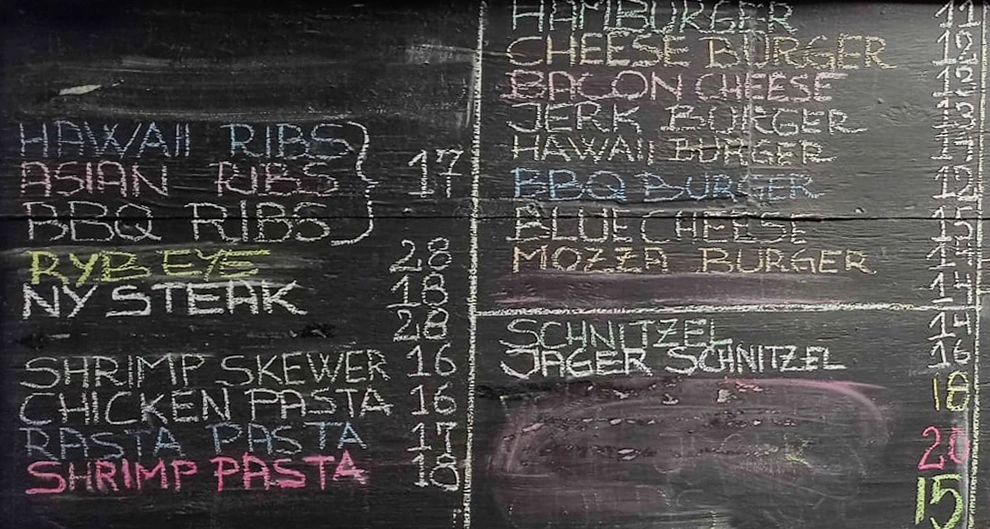 HAWAII RIBS
ASIAN RIBS 17
BBQ RIBS
RYB EYE 28
NY STEAK 18
28
SHRIMP SKEWER 16
CHICKEN PASTA 16
RASTA PASTA 17
SHRIMP PASTA 18
HAMBURGER 11
CHEESE BURGER 12
BACON CHEESE
JERK BURGER 13
HAWAII BURGER
BBQ BURGER 12
BLUE CHEESE 15
MOZZA BURGER
14
SCHNITZEL 14
JAGER SCHNITZEL 16
18
20
15